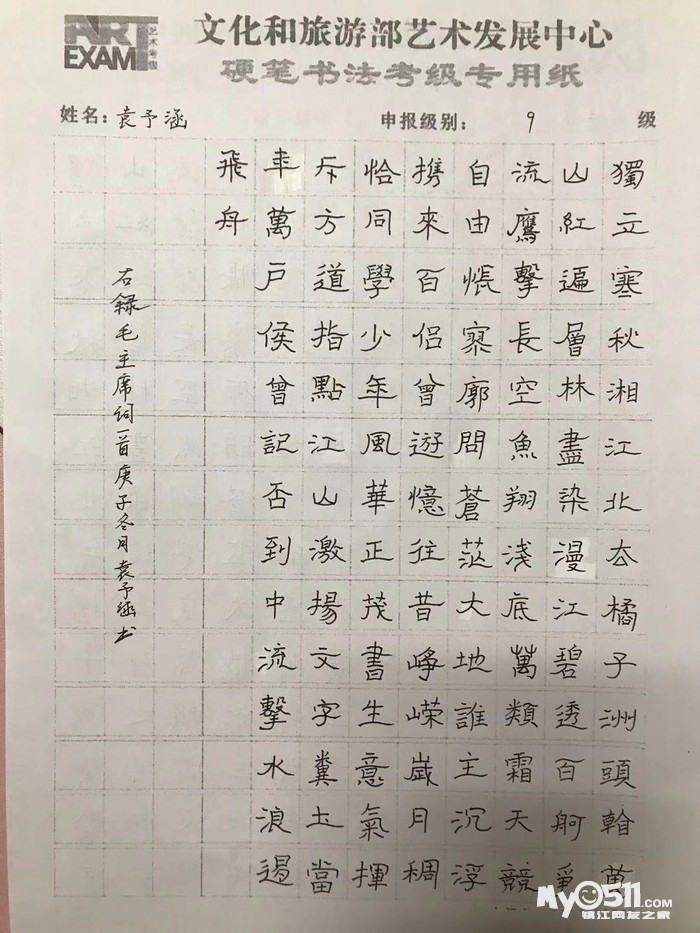 ART
EXAM
艺术考级
文化和旅游部艺术发展中心
硬笔书法考级专用纸
姓名：袁予涵
申报级别：9级
獨立寒秋湘江北去橘子洲頭看萬
山紅遍層林盡染漫江碧透百舸爭
流鷹擊長空魚翔淺底萬類霜天競
自由悵寥廓問蒼茫大地誰主沉浮
携來百侶曾遊憶往昔崢嶸歲月稠
恰同學少年風華正茂書生意氣揮
斥方道指點江山激揚文字糞土當
年萬戶侯曾記否到中流擊水浪遏
飛舟
右録毛主席词一首庚子冬月袁予涵书
My0511.com
镇江网友之家